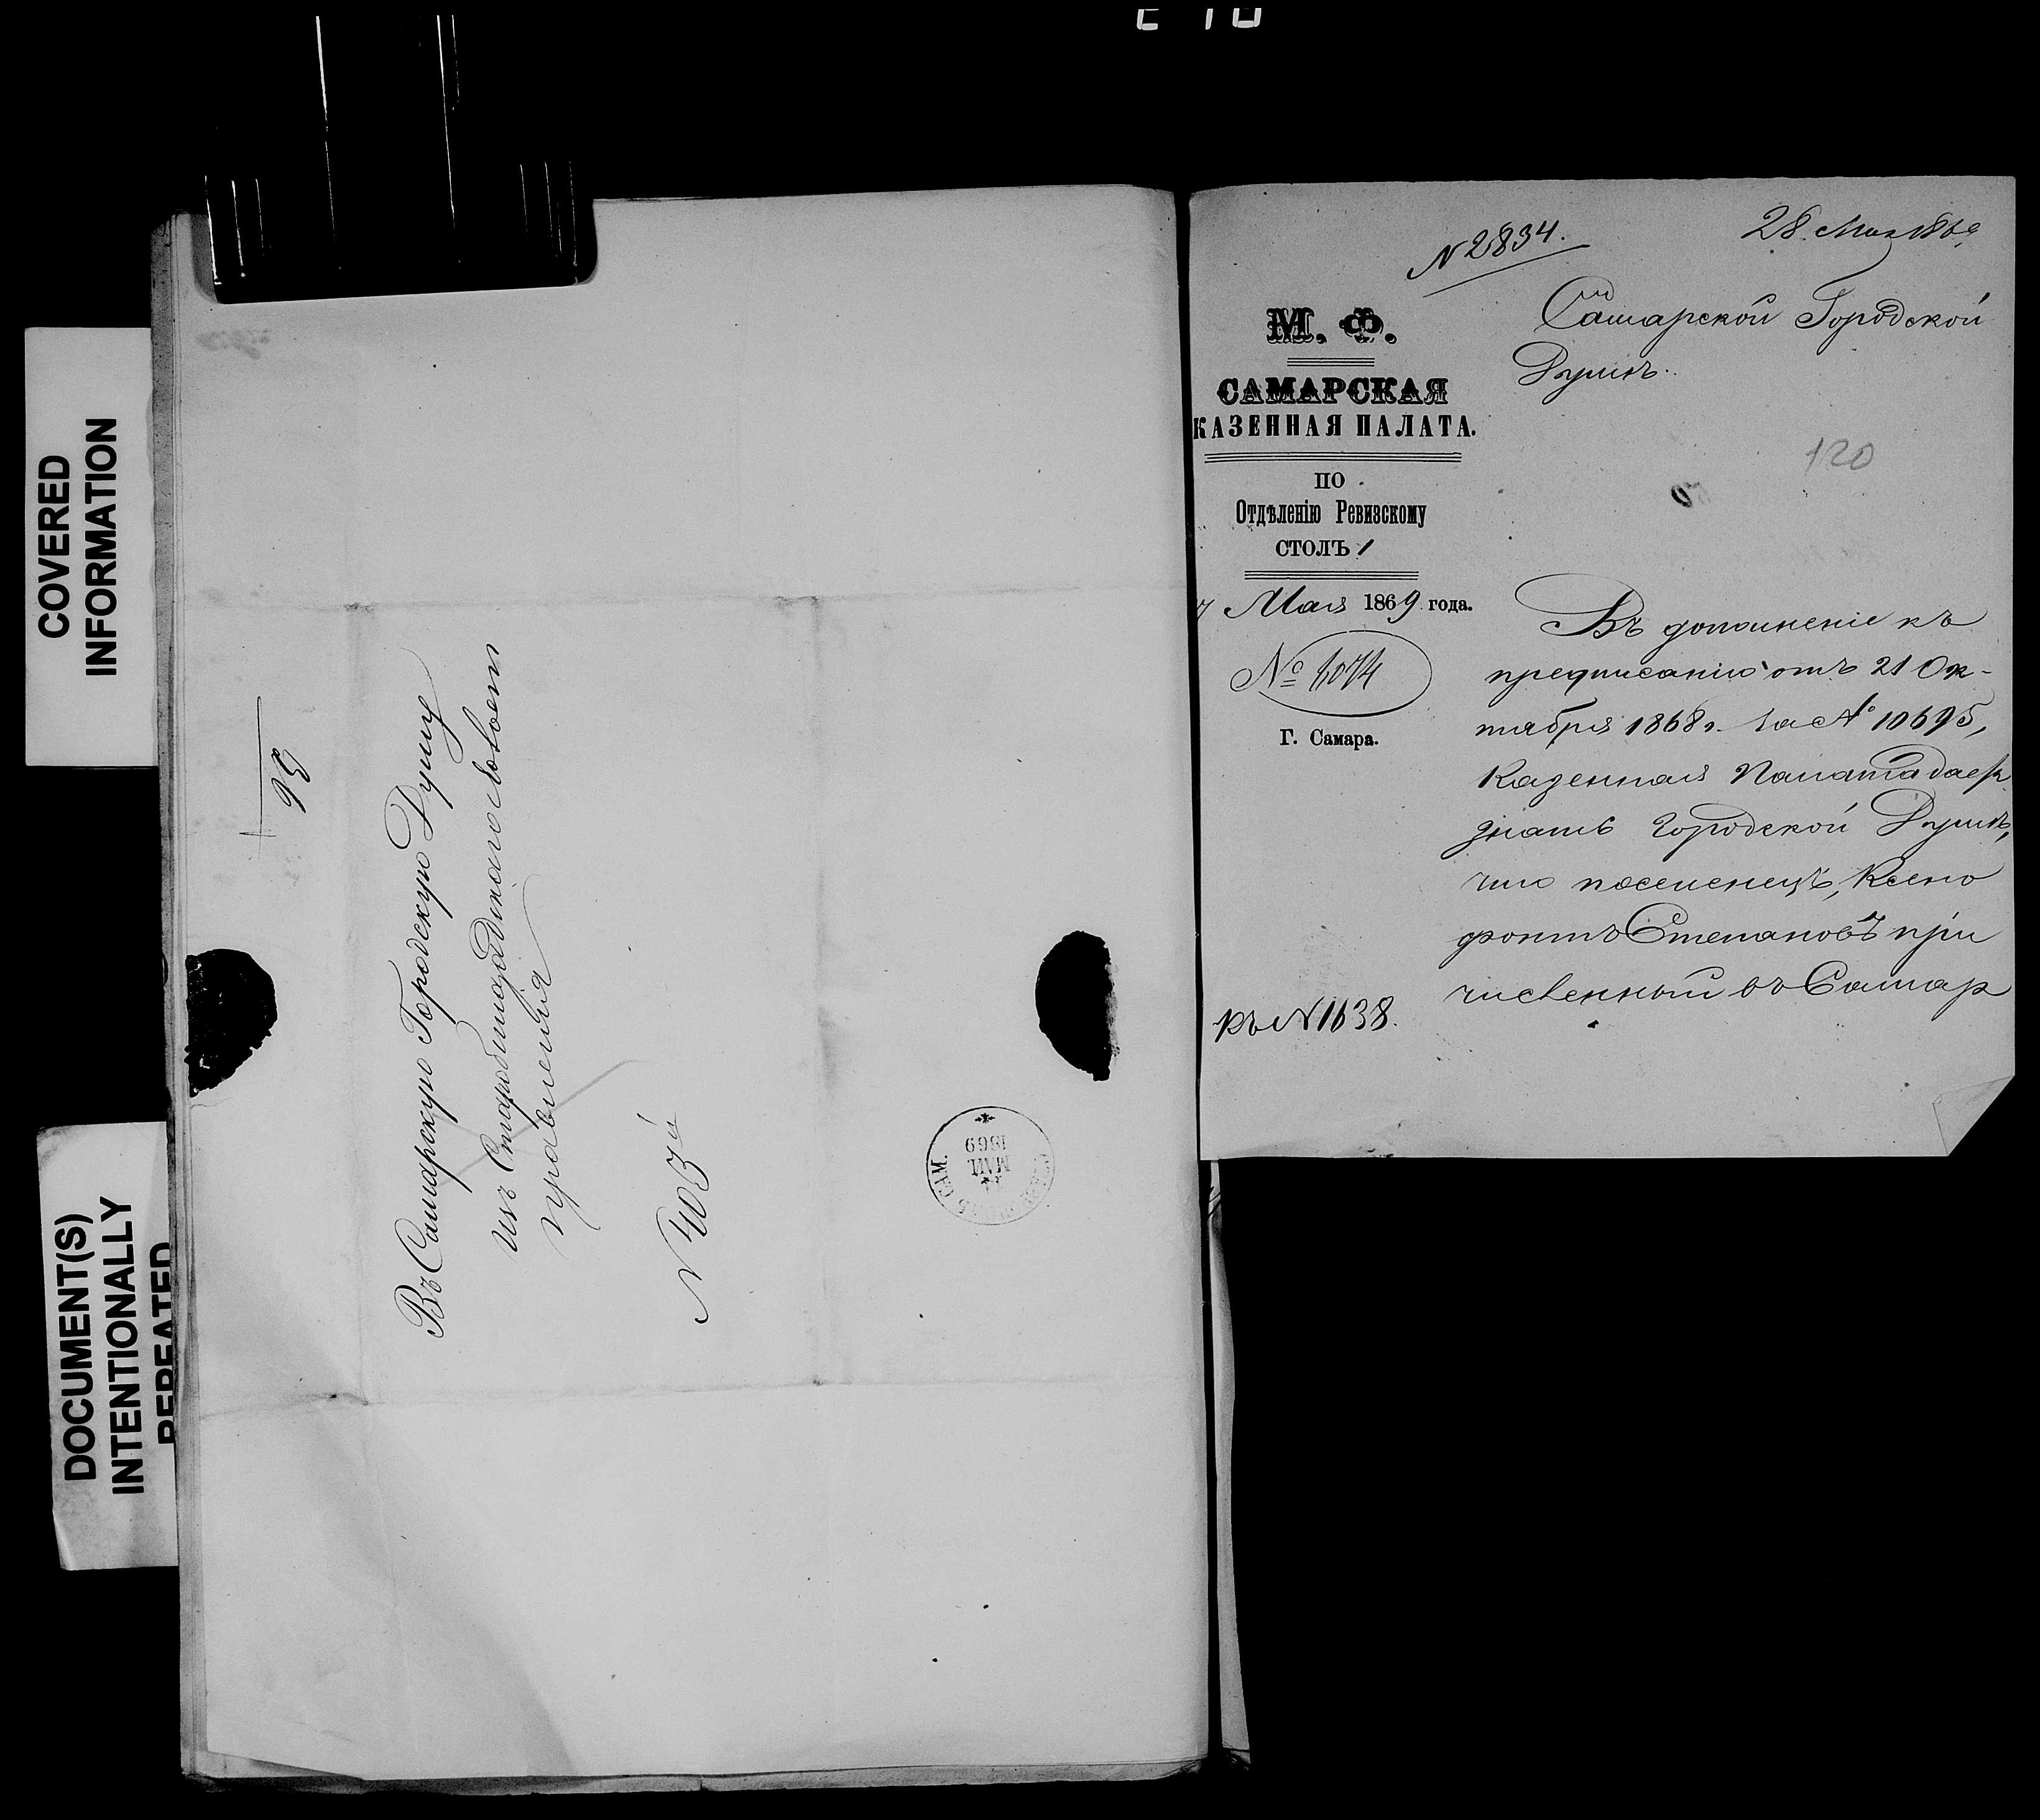 COVERED
INFORMATION
DOCUMENT(S)
INTENTIONALLY
REPEATED
Въ Самарскую Городскую Думу
изъ Старобинарадскаго Волостн
правленія
N 403й
САМ.
МАЯ
1869
N 2834.
28 Мая 1869
Самарской Городской
Думѣ.
120
М. Ф.
САМАРСКАЯ
КАЗЕННАЯ ПАЛАТА.
ПО
Отдѣленію Ревизскому
СТОЛЪ 1
7 Мая 1869 года.
№ 4074
Г. Самара.
къ N 1638.
Въ дополненіе къ
предписанію отъ 21 Ок-
тября 1868 г. за № 10695,
Казенная Палата даетъ
знать Городской Думѣ,
что поселенецъ, Ксено
фонтъ Степановъ при
численный въ Самар